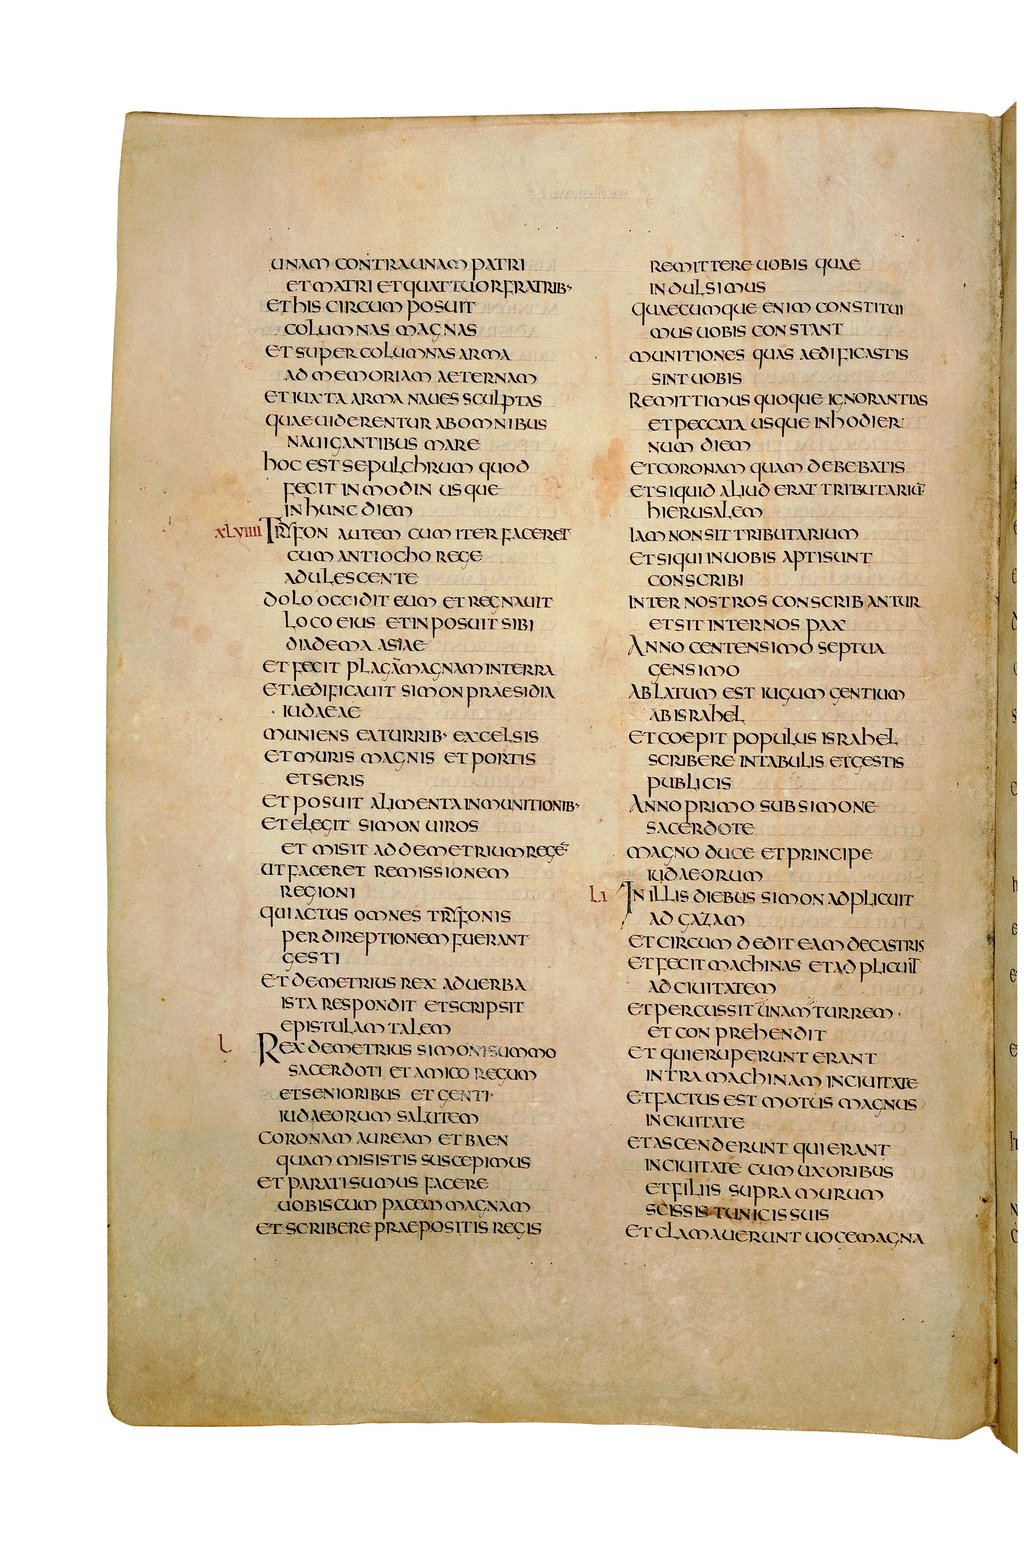 UNAM CONTRA UNAM PATRI
ET MATRI ET QUATTUOR FRATRIB·
ET HIS CIRCUM POSUIT
COLUMNAS MAGNAS
ET SUPER COLUMNAS ARMA
AD MEMORIAM AETERNAM
ET IUXTA ARMA NAUES SCULPTAS
QUAE UIDERENTUR AB OMNIBUS
NAUIGANTIBUS MARE
HOC EST SEPULCHRUM QUOD
FECIT IN MODIN USQUE
IN HUNC DIEM
XLVIIII TRYFON AUTEM CUM ITER FACERET
CUM ANTIOCHO REGE
ADULESCENTE
DOLO OCCIDIT EUM ET REGNAUIT
LOCO EIUS ET INPOSUIT SIBI
DIADEMA ASIAE
ET FECIT PLAGĀ MAGNAM IN TERRA
ET AEDIFICAUIT SIMON PRAESIDIA
· IUDAEAE
MUNIENS EA TURRIB· EXCELSIS
ET MURIS MAGNIS ET PORTIS
ET SERIS
ET POSUIT ALIMENTA IN MUNITIONIB·
ET ELEGIT SIMON UIROS
ET MISIT AD DEMETRIUM REGĒ
UT FACERET REMISSIONEM
REGIONI
QUI ACTUS OMNES TRYFONIS
PER DIREPTIONEM FUERANT
GESTI
ET DEMETRIUS REX AD UERBA
ISTA RESPONDIT ET SCRIPSIT
EPISTULAM TALEM
L REX DEMETRIUS SIMONI SUMMO
SACERDOTI ET AMICO REGUM
ET SENIORIBUS ET GENTI·
IUDAEORUM SALUTEM
CORONAM AUREAM ET BAEN
QUAM MISISTIS SUSCEPIMUS
ET PARATI SUMUS FACERE
UOBISCUM PACEM MAGNAM
ET SCRIBERE PRAEPOSITIS REGIS
REMITTERE UOBIS QUAE
INDULSIMUS
QUAECUMQUE ENIM CONSTITUI
MUS UOBIS CONSTANT
MUNITIONES QUAS AEDIFICASTIS
SINT UOBIS
REMITTIMUS QUOQUE IGNORANTIAS
ET PECCATA USQUE IN HODIER
NUM DIEM
ET CORONAM QUAM DEBEBATIS
ET SI QUID ALIUD ERAT TRIBUTARIŪ
HIERUSALEM
IAM NON SIT TRIBUTARIUM
ET SI QUI IN UOBIS APTI SUNT
CONSCRIBI
INTER NOSTROS CONSCRIBANTUR
ET SIT INTER NOS PAX
ANNO CENTENSIMO SEPTUA
GENSIMO
ABLATUM EST IUGUM GENTIUM
AB ISRAHEL
ET COEPIT POPULUS ISRAHEL
SCRIBERE IN TABULIS ET GESTIS
PUBLICIS
ANNO PRIMO SUB SIMONE
SACERDOTE
MAGNO DUCE ET PRINCIPE
IUDAEORUM
LI IN ILLIS DIEBUS SIMON ADPLICUIT
AD GAZAM
ET CIRCUMDEDIT EAM DE CASTRIS
ET FECIT MACHINAS ET ADPLICUIT
AD CIUITATEM
ET PERCUSSIT UNAM TURREM ·
ET CONPREHENDIT
ET QUI ERUPERUNT ERANT
INTRA MACHINAM IN CIUITATE
ET FACTUS EST MOTUS MAGNUS
IN CIUITATE
ET ASCENDERUNT QUI ERANT
IN CIUITATE CUM UXORIBUS
ET FILIIS SUPRA MURUM
SCISSIS TUNICIS SUIS
ET CLAMAUERUNT UOCE MAGNA